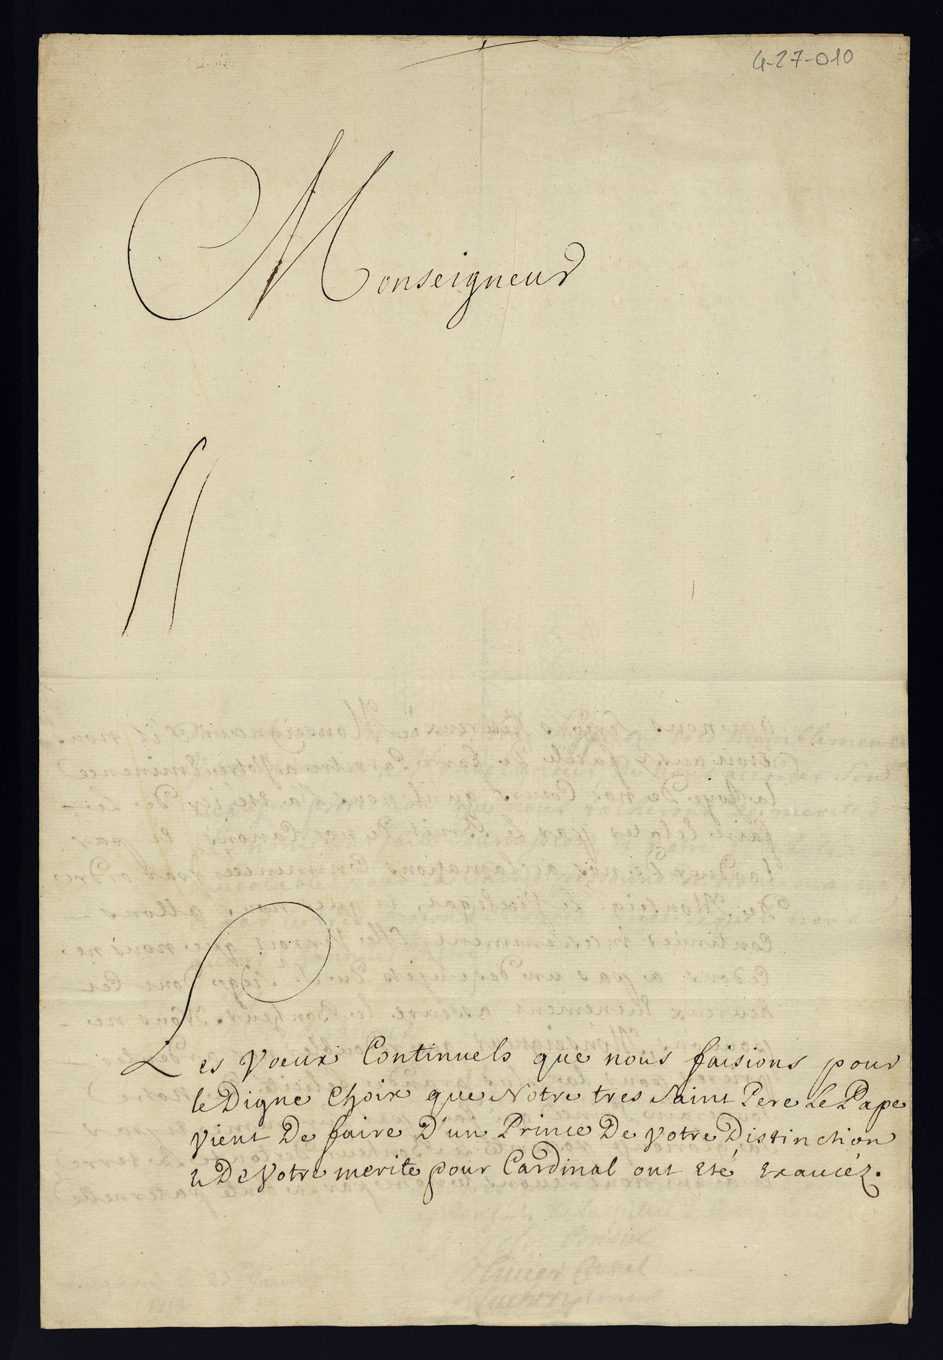 4-27-010
Monseigneur
Les Voeux Continuels que nous faisions pour
le Digne Choix que Notre tres Saint Pere Le Pape
Vient De faire D'un Prince De Votre Distinction
et De Votre merite pour Cardinal ont eté exaucéz.